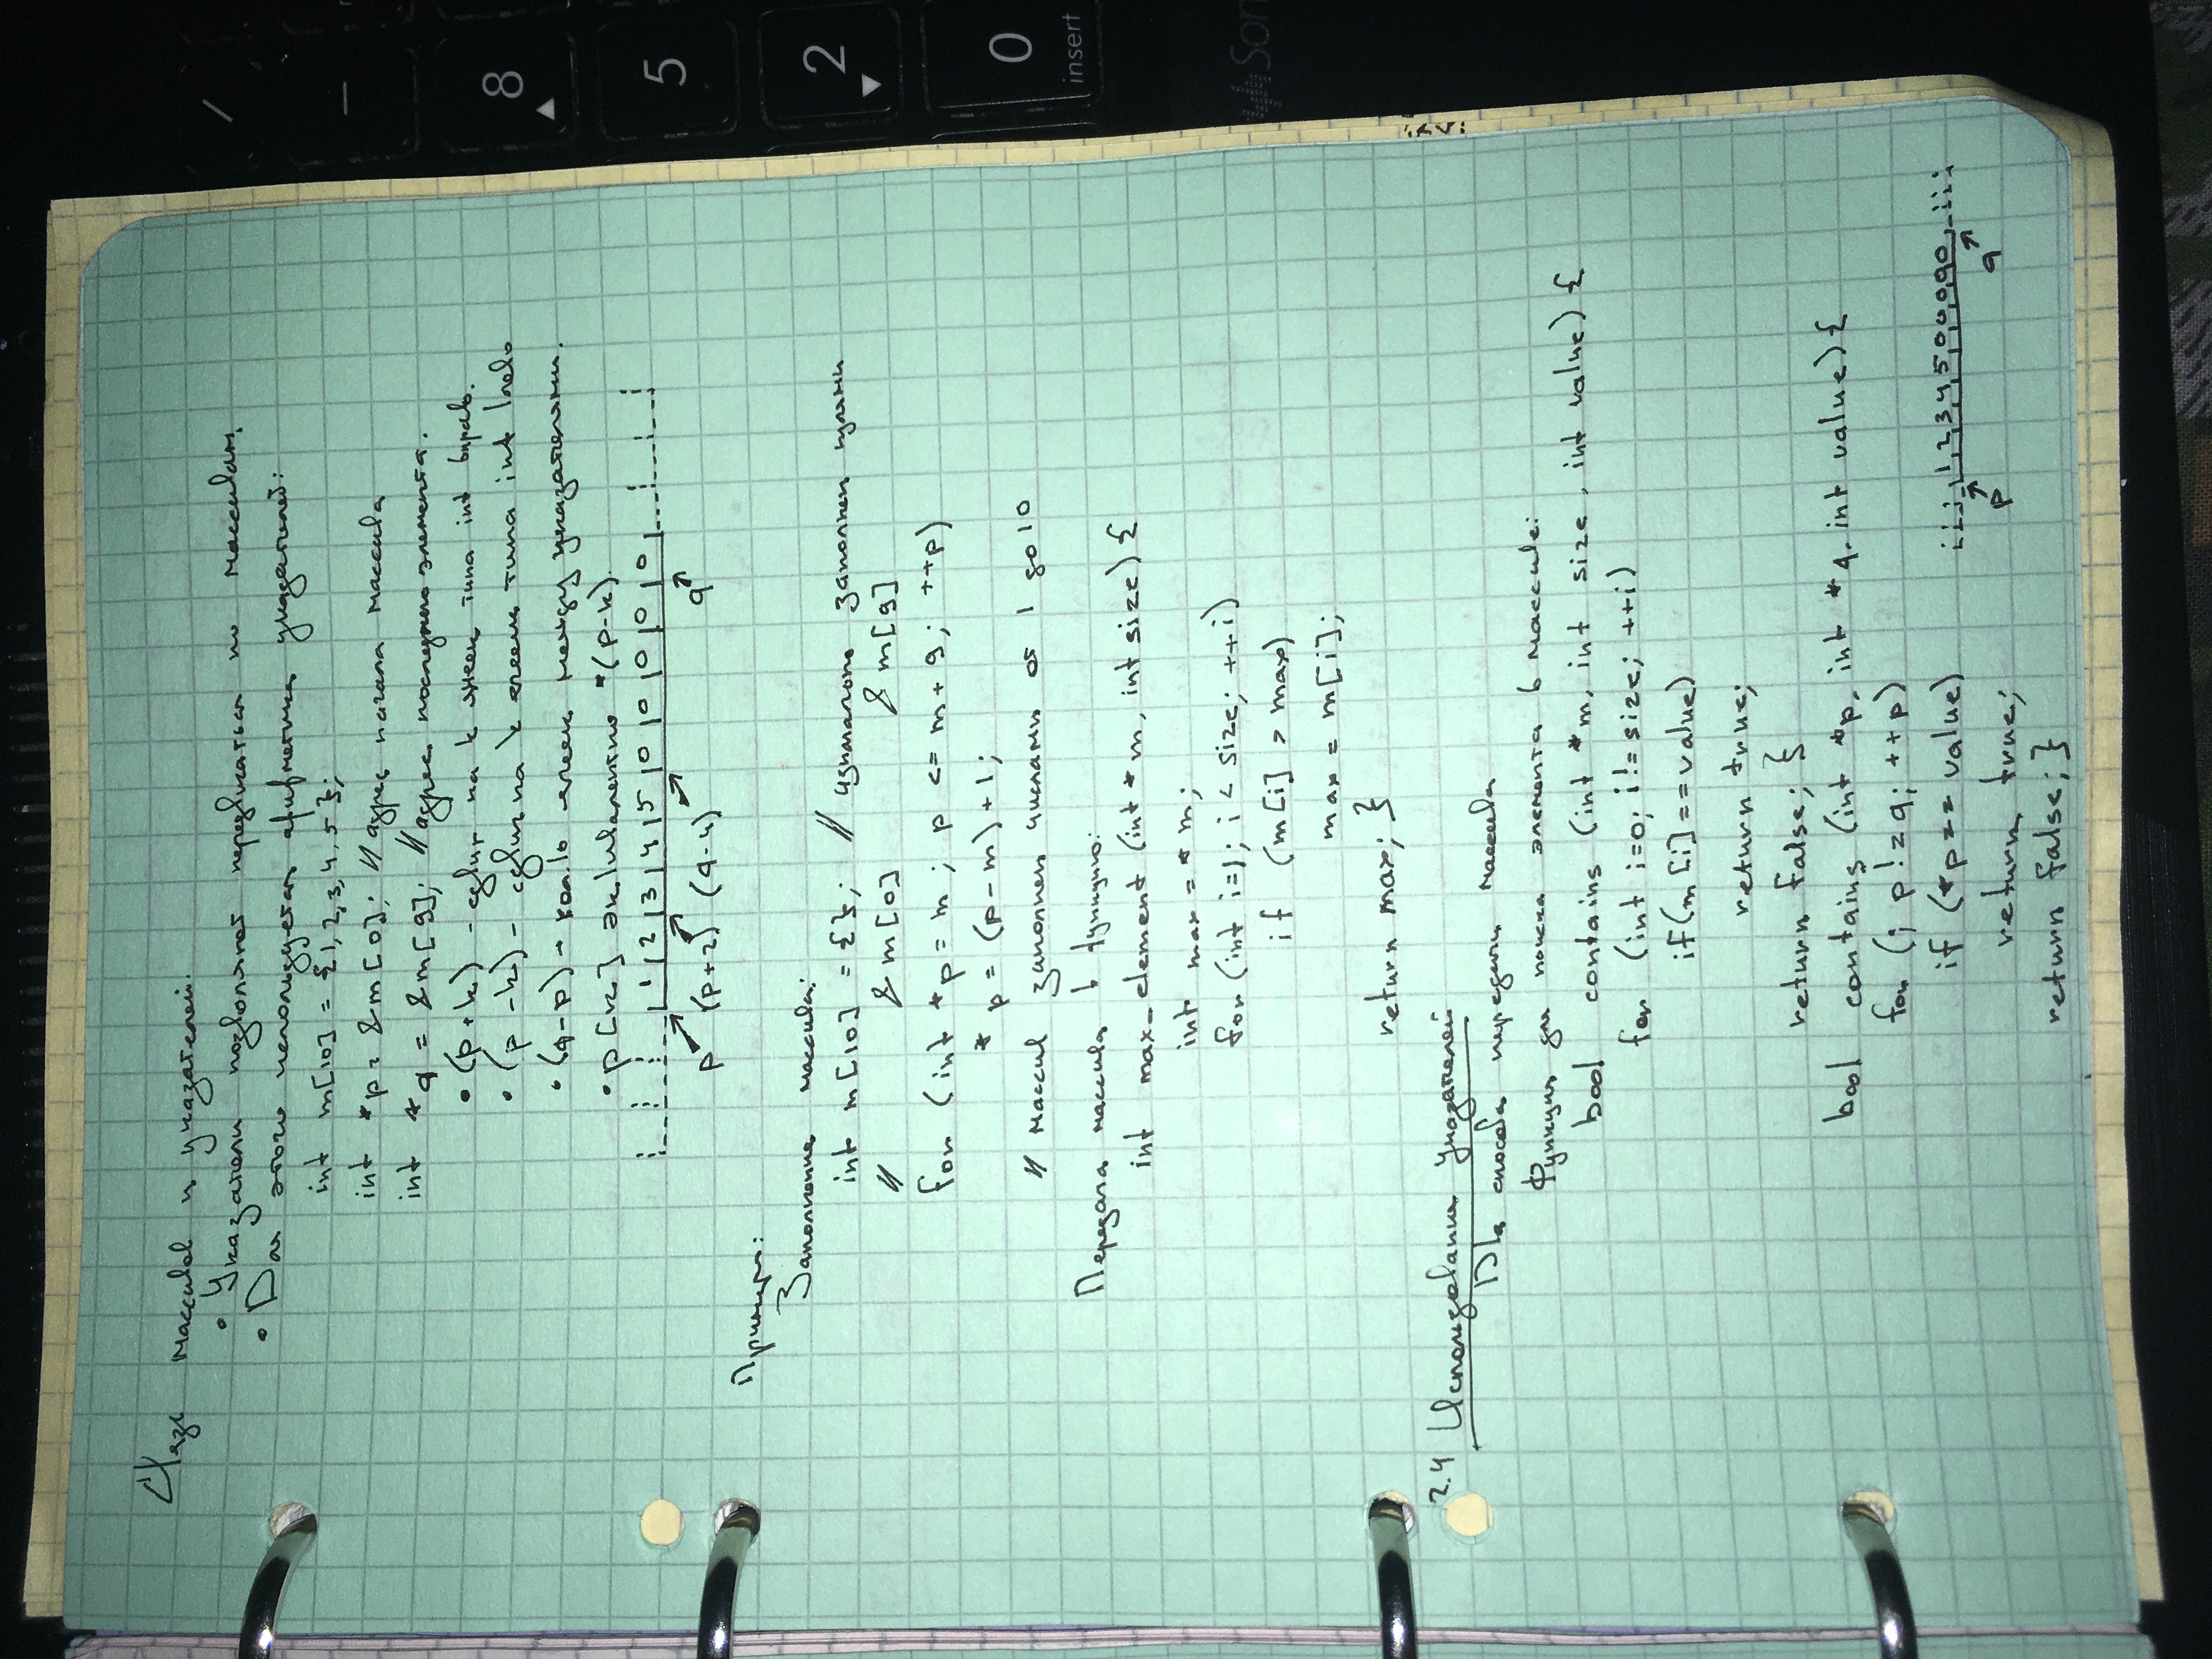 Связь массивов и указателей.
• Указатели позволяют передвигаться по массивам.
• Для этого используется арифметика указателей:
int m[10] = {1, 2, 3, 4, 5};
int *p = &m[0]; // адрес начала массива
int *q = &m[9]; // адрес последнего элемента.
• (p+k) - сдвиг на k ячеек типа int вправо.
• (p-k) - сдвиг на k ячеек типа int влево
• (q-p) - кол-во ячеек между указателями.
• p[k] эквивалентно *(p-k).
1 2 3 4 5 0 0 0 0 0
p (p+2) (q-4) q
Примеры:
Заполнение массива:
int m[10] = {}; // изначально заполнен нулями
// &m[0] &m[9]
for (int *p = m; p <= m + 9; ++p)
*p = (p-m) + 1;
// массив заполнен числами от 1 до 10
Передача массива в функцию:
int max_element (int *m, int size) {
int max = *m;
for (int i=1; i < size; ++i)
if (m[i] > max)
max = m[i];
return max; }
2.4 Использование указателей
Два способа передачи массива
Функция для поиска элемента в массиве:
bool contains (int *m, int size, int value) {
for (int i=0; i != size; ++i)
if (m[i] == value)
return true;
return false; }
bool contains (int *p, int *q, int value) {
for (; p != q; ++p)
if (*p == value)
1 2 3 4 5 0 0 0 0 0
return true;
p q
return false; }
/
-
8
5
2
0
insert
Son